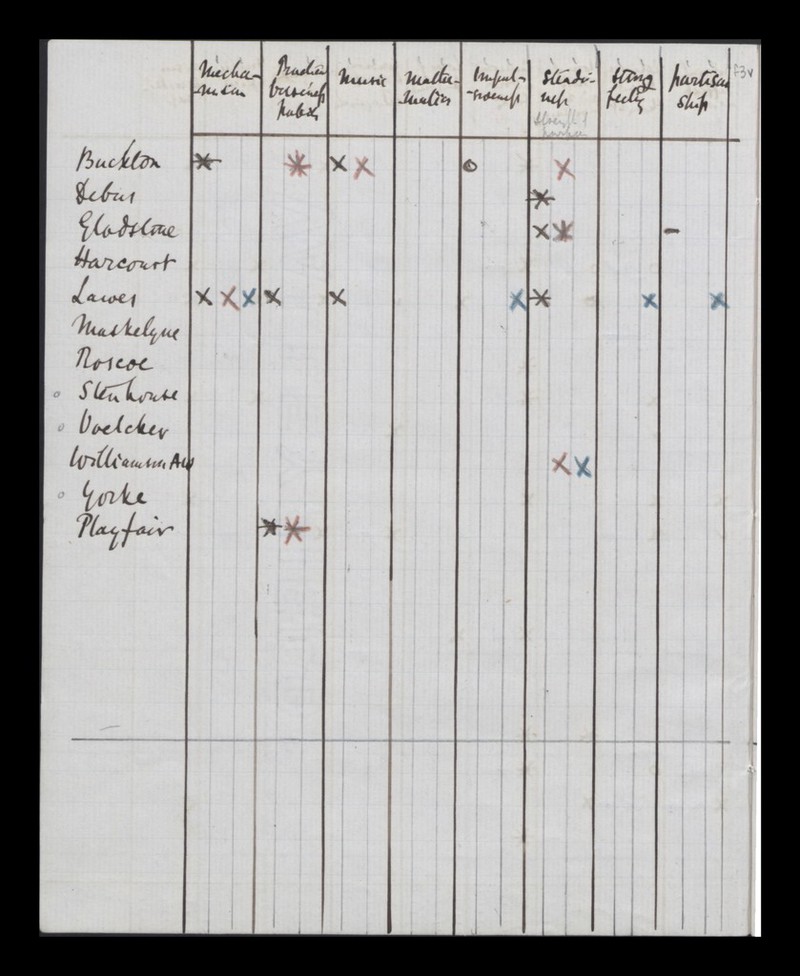 Mecha-
-nician
Practical
business
habits
Music
Mathe-
-matics
Impul-
-siveness
Steadi-
ness
Strong
partisan
ship
F3v
Buckton
Debus
Gladstone
Harcourt
Lawes
Maskelyne
Roscoe
Stenhouse
Voelcker
Williamson AW
Yorke
Playfair